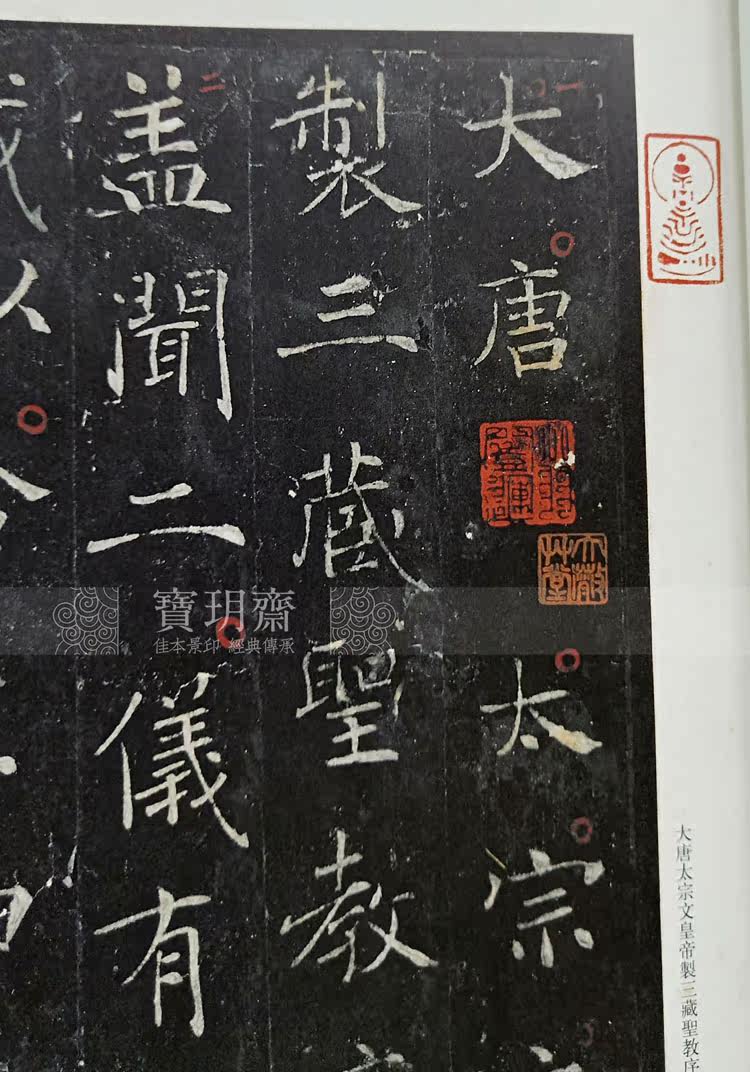 大唐太宗
製三藏聖教
盖聞二儀有
以
一
二
大唐太宗文皇帝製三藏聖教序
寶玥齋
佳本景印 經典傳承